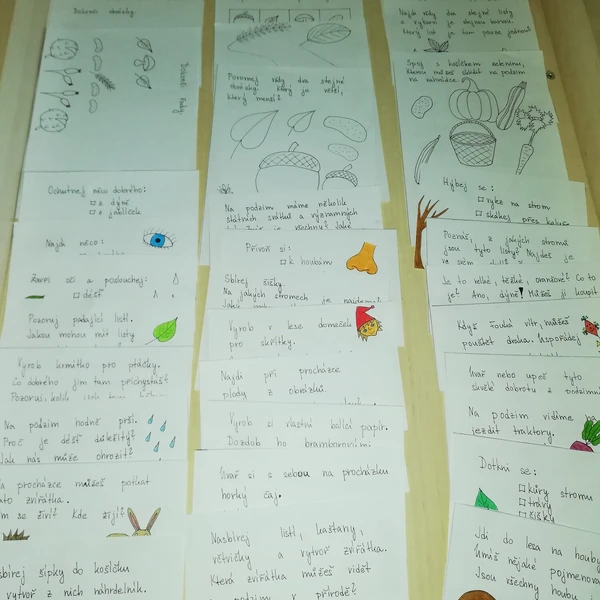 Dokonči obrázky.
Dokonči řady
Ochutnej něco dobrého:
z dýně
z jablíček
Najdi něco:
Zavři oči a poslouchej:
déšť
Pozoruj padající listí.
Jakou mohou mít listy
Vyrob krmítko pro ptáčky.
Co dobrého jim tam přichystáš?
Pozoruj, kolik
Na podzim hodně prší.
Proč je déšť důležitý?
Jak nás může ohrozit?
procházce můžeš potkat
zvířátka.
se živí? Kde žijí?
šípky do košíčku
vytvoř z nich náhrdelník.
Porovnej vždy dva stejné
obrázky. Který je větší,
který menší?
Na podzim máme několik
státních svátků a významných
je všechny? Jaké
Přivoň si:
k houbám
Sbírej šišky.
Na jakých stromech
je najdeme?
Vyrob v lese domeček
pro skřítky.
Najdi při procházce
plody z obrázků.
Vyrob si vlastní balicí papír.
Ozdob ho bramborovými
Uvař si s sebou na procházku
horký čaj.
Nasbírej listí, kaštany,
větvičky a vytvoř zvířátka.
Která zvířátka můžeš vidět
podzim v přírodě?
Najdi vždy dva stejné listy
a vybarvi je stejnou barvou.
Který list je tam pouze jednou?
Spoj s košíkem zeleninu,
kterou můžeš sklidit na podzim
na zahrádce.
Hýbej se:
vylez na strom
skákej přes kaluže
Poznáš, z jakých stromů
jsou tyto listy? Najdeš je
ve svém
Je to velké, těžké, oranžové? Co to
je? Ano, dýně! Můžeš ji koupit
Když fouká vítr, můžeš
pouštět draka. Uspořádej
Uvař nebo upeč tyto
skvělé dobroty z podzimní
Na podzim vidíme na
jezdit traktory.
Dotkni se:
kůry stromu
trávy
šišky
Jdi do lesa na houby
Umíš nějaké pojmenovat
Jsou všechny houby